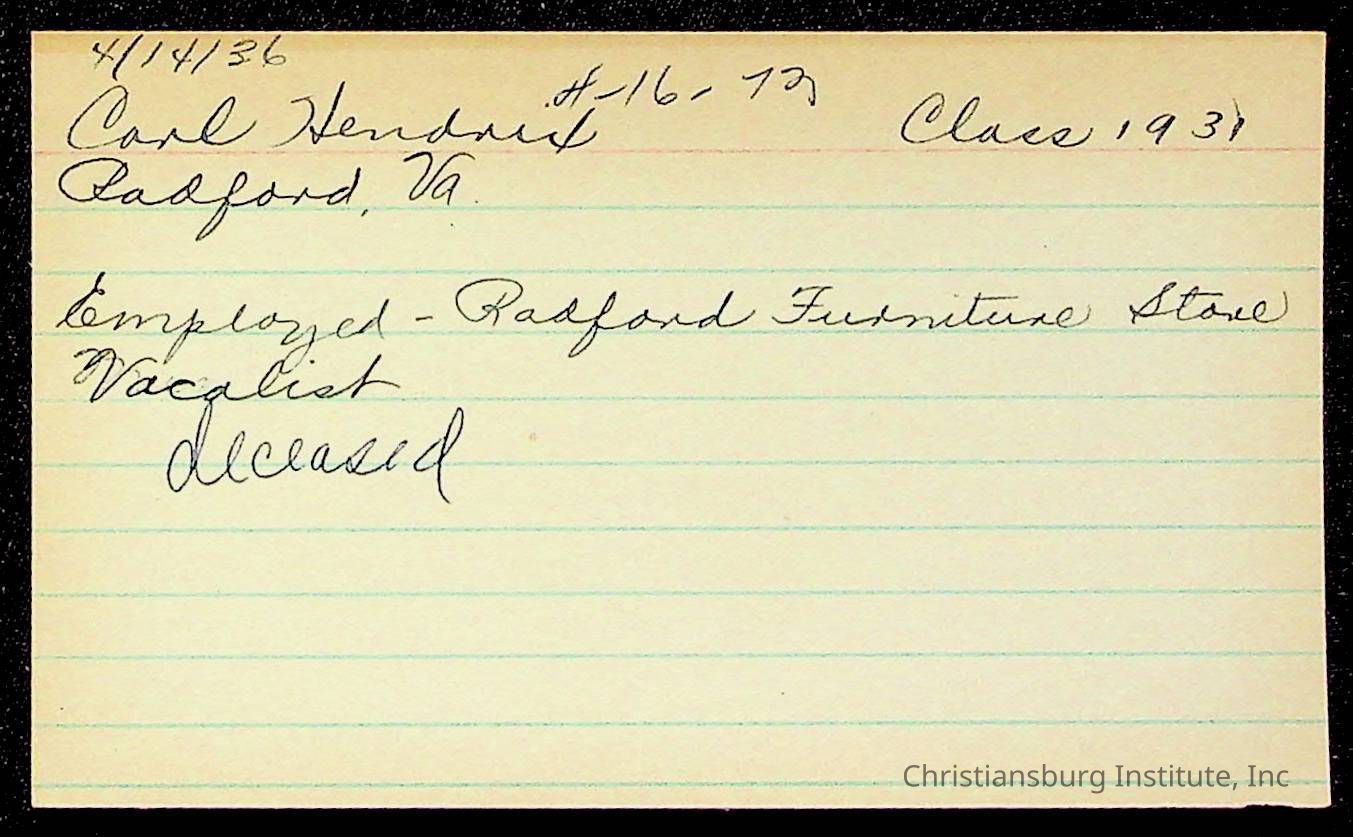 4/14/36
H-16-72
Carl Hendrix Class 1931
Radford, Va.
Employed - Radford Furniture Store
Vocalist
deceased
Christiansburg Institute, Inc